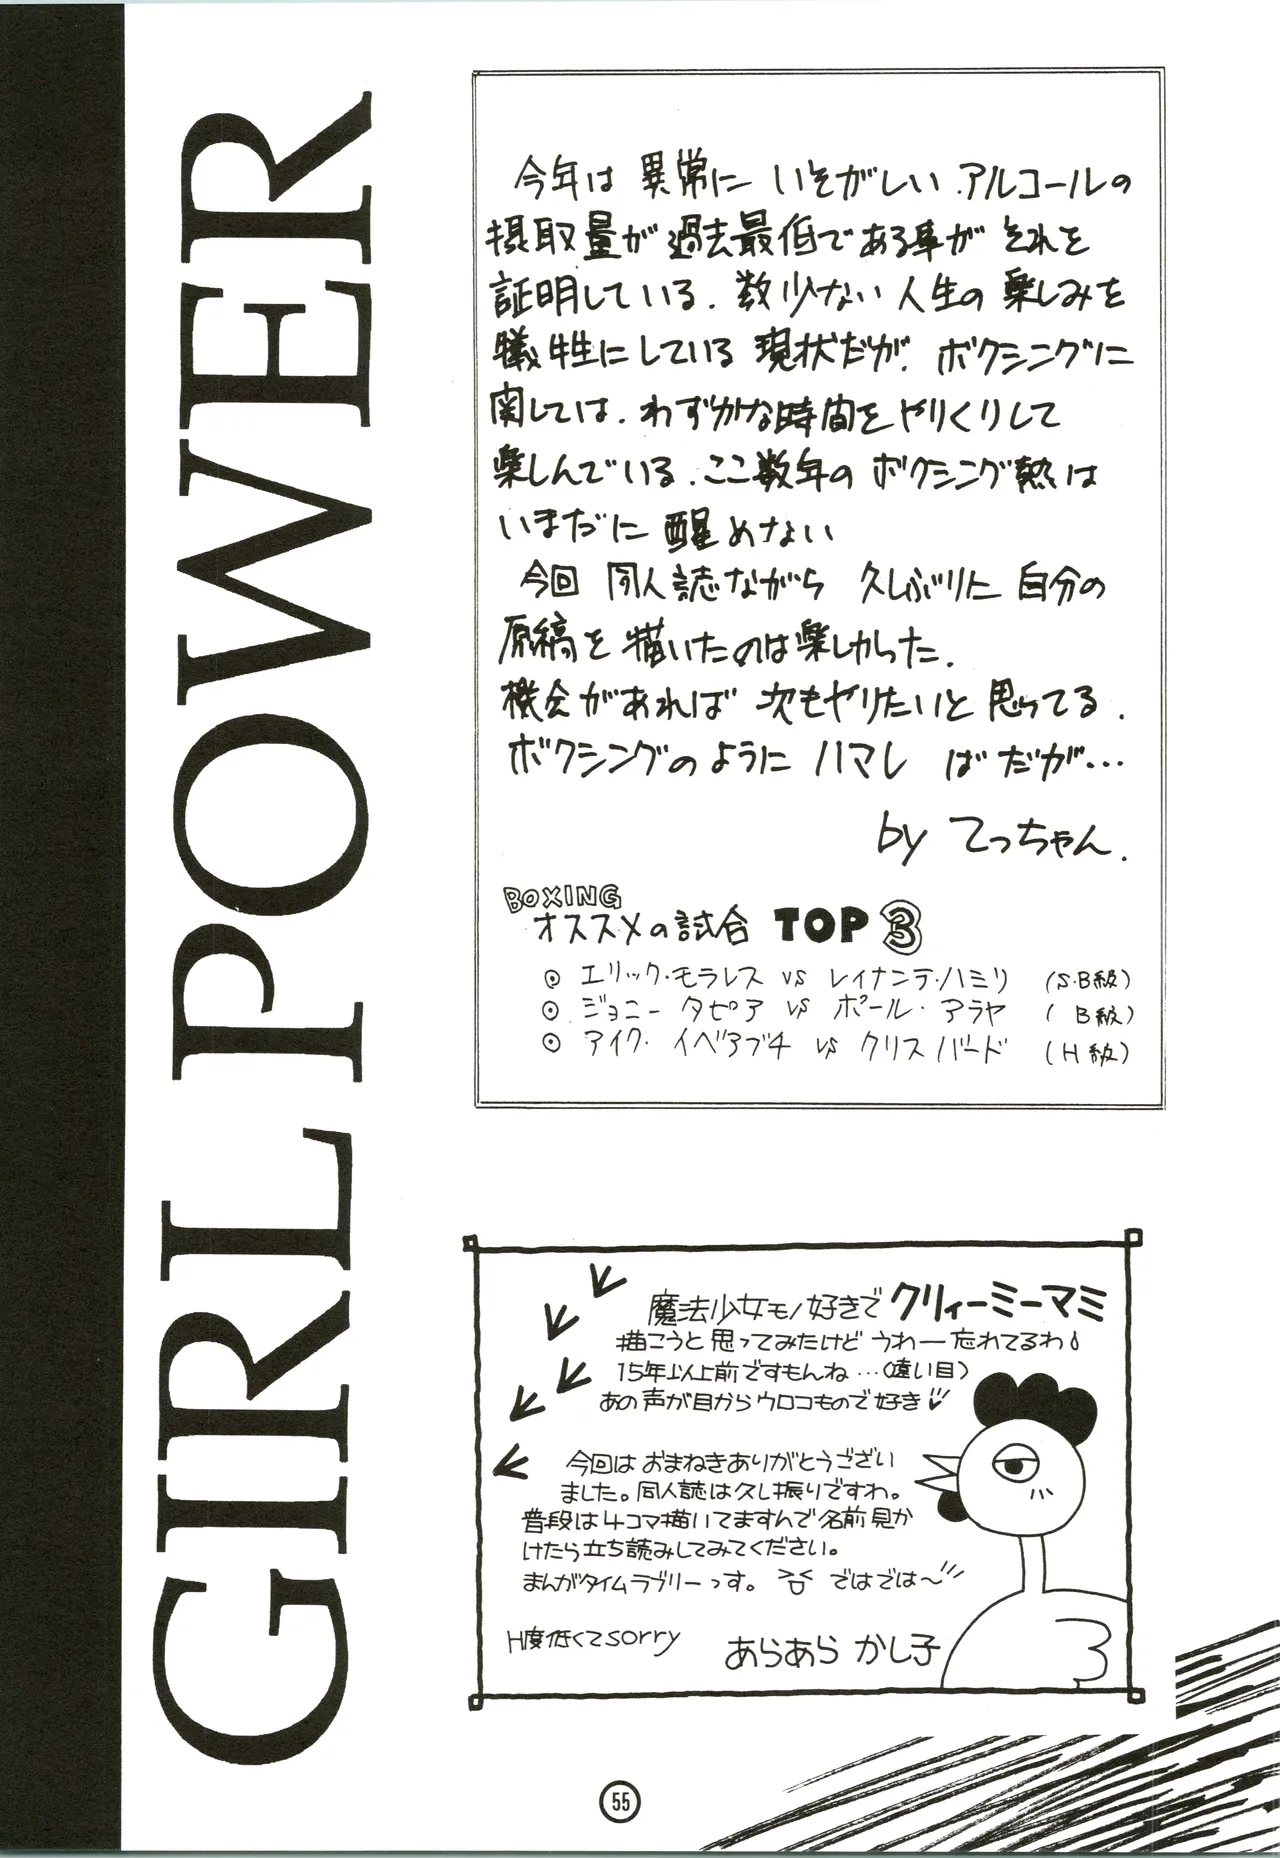 GIRL POWER
今年は 異常に いそがしい.アルコールの
摂取量が過去最低である事が それを
証明している. 数少ない 人生の 楽しみを
犠牲にしている 現状だが. ボクシングに
関しては. わずかな時間を やりくりして
楽しんでいる.ここ数年の ボクシング熱は
いまだに 醒めない
今回 同人誌ながら 久しぶりに 自分の
原稿を 描いたのは楽しかった.
機会があれば 次もやりたいと 思ってる.
ボクシングのように ハマレ ばだが…
by てっちゃん.
BOXING
オススメの試合 TOP 3
◎ エリック・モラレス vs レイナンテ・ハミリ (S.B級)
◎ ジョニー タピア vs ポール・アラヤ ( B級)
◎ アイク・イベアブチ vs クリス バード (H級)
魔法少女モノ好きで クリィーミーマミ
描こうと思ってみたけど うわー忘れてるわ
15年以上前ですもんね…(遠い目)
あの声が目からウロコもので好き
今回は おまねきありがとうござい
ました。同人誌は久し振りですわ。
普段は4コマ描いてますんで名前見か
けたら立ち読みしてみてください。
まんがタイムラブリーっす。 ではでは〜
H度低くてsorry
あらあら かし子
55